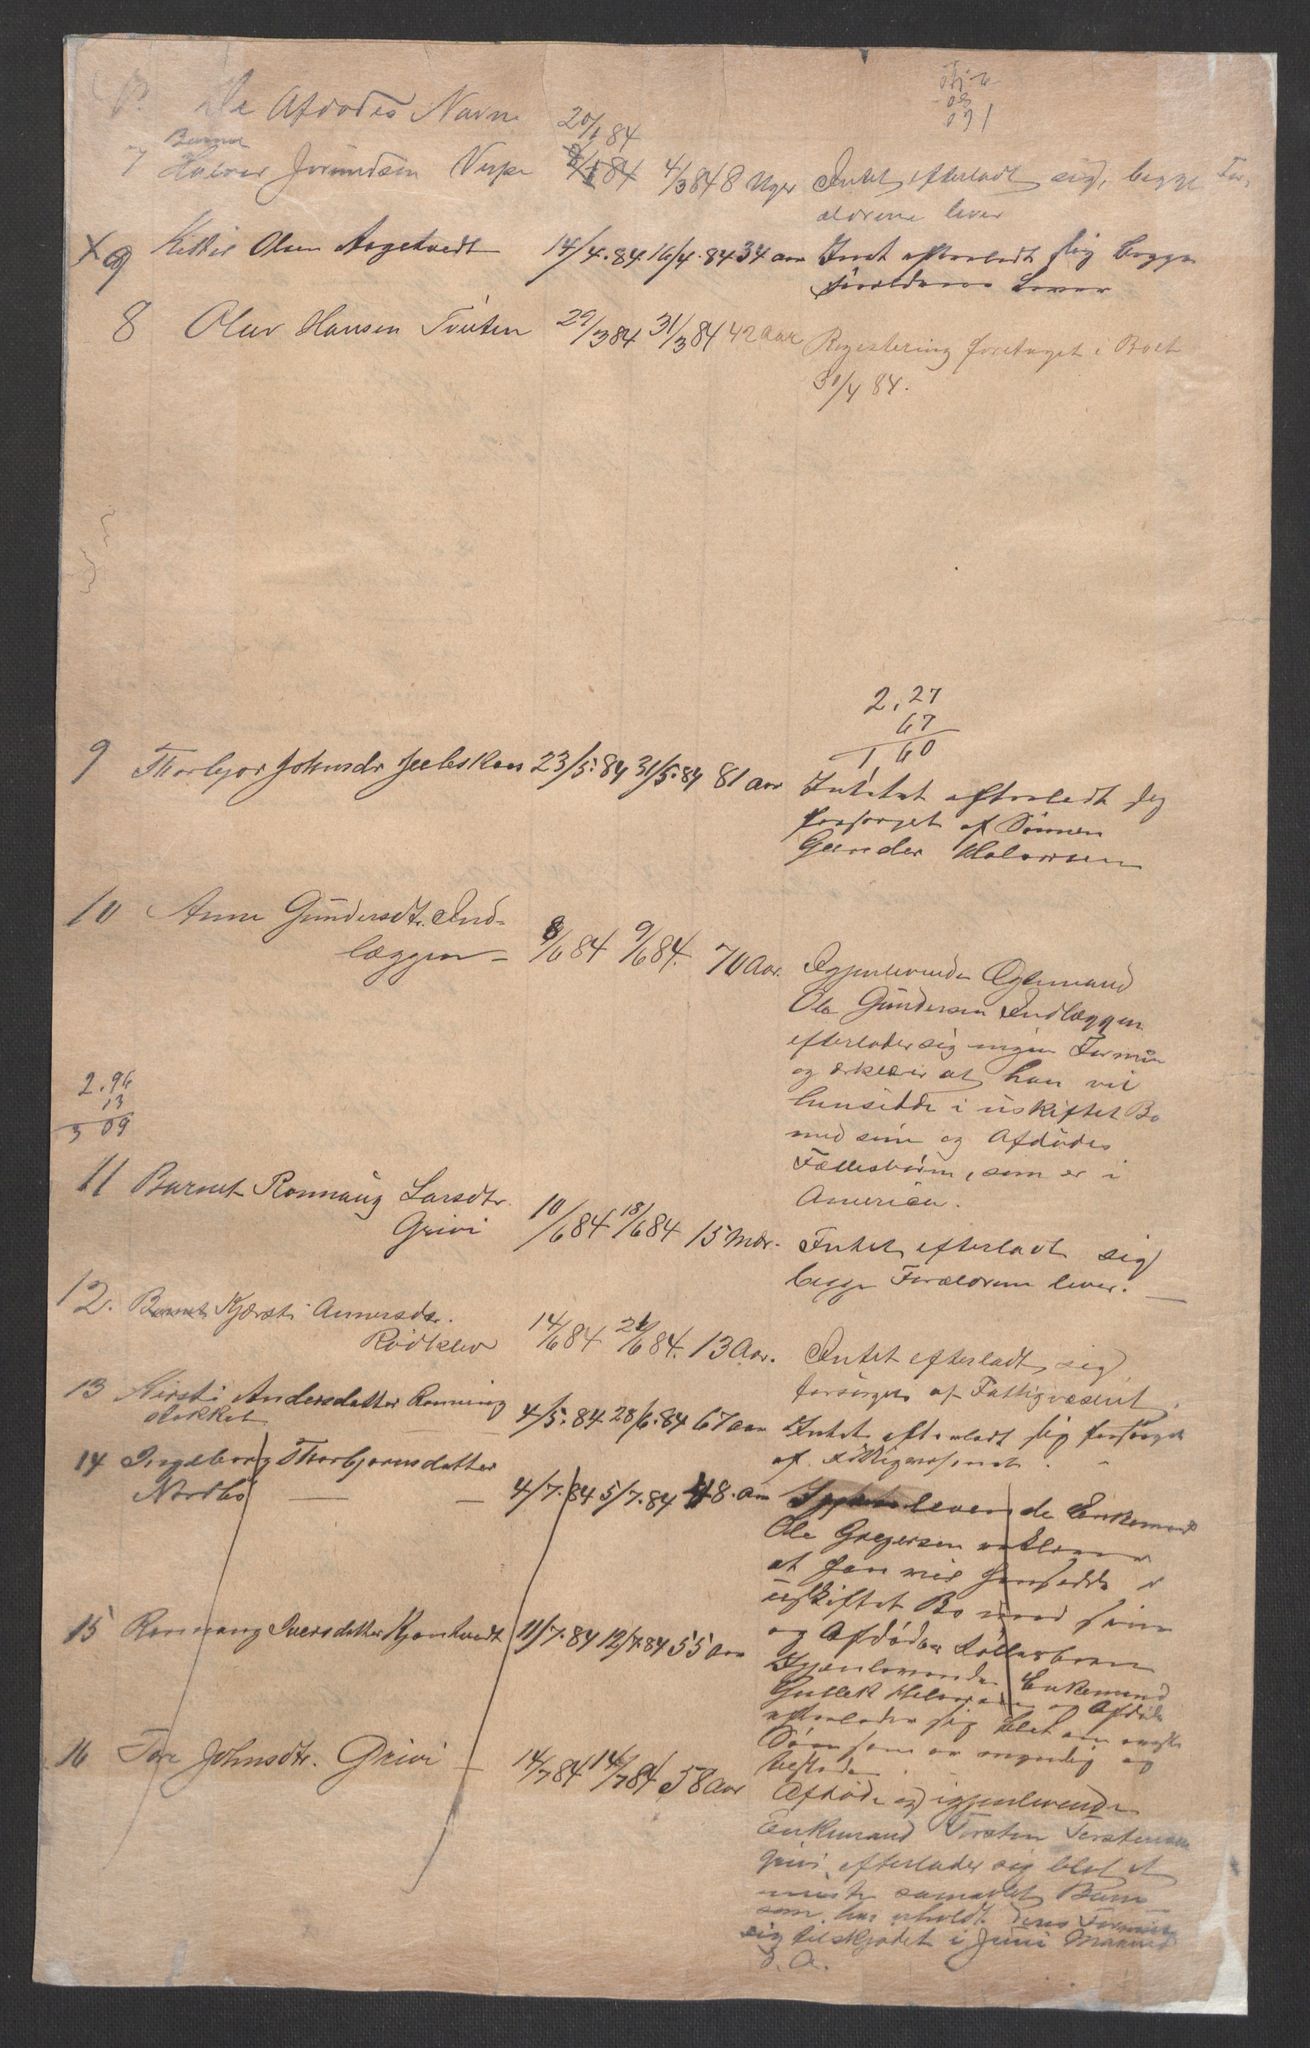 De Afdødes Navne
20/1 84
7 Barnet Halvor Jörundsen Verpe 4/3 84 8 Uger Intet efterladt sig, begge For-
ældrene lever
X Kittil Olsen Aagetvedt 14/4.84 16/4.84 34 aar Intet efterladt sig begge
Forældrene Lever
8 Oluv Hansen Tvüten 29/3 84 31/3 84 42 Aar Registering foretaget i Boet
30/4 84.
2,27
67
1 60
9 Thorbjør Johnsdr 23/5.84 31/5.84 81 aar Intet efterladt sig
forsørget af Sønnen
Gunder Halvorsen
10 Anne Gündersdtr. Ind-
læggen – 8/6 84 9/6 84. 70 Aar. Igjenlevende Egtemand
Ole Gündersen Indlæggen
efterlader sig ingen Formüe
og erklærer at han vil
hensidde i üskiftet Bo
med sine og Afdödes
Fællesbörn, som er i
Amerika.
2.96
13
3 09
11 Barnet Ronnaüg Larsdtr.
Grivi 10/6 84 18/6 84 15 Mdr. Intet efterladt sig
begge Forældrene lever. —
12. Kjærsti Annersdr.
Rödklev 14/6 84 21/6 84. 13 Aar. Intet efterladt sig
forsörget af Fattigvæsenet.
13 Kirsti Andersdatter Rønning
stokket 4/5.84 28/6.84 67 aar Intet efterladt sig forsørget
af Fattigvæsenet.
14 Ingeborg Thorbjørnsdatter
Nordbø — — 4/7.84 5/7.84 48. aar levende Enkemand
Ole Gregersen erklærer
at han vil hensidde i
üskiftet Bo med sine
og Afdødes Fællesbørn
15 Ronnaug Iversdatter 11/7.84 12/7.84 55 aar
Igjenlevende Enkemand
Gullek Halvorsen og Afdøde
efterlader sig blot en
Søn som er myndig og
16 Tore Johnsdtr. Grivi — 14/7 84 14/7 84 58 Aar
Afdöde og igjenlevende
Enkemand Torsten Torstensen
Grivi, efterlader sig blot et
samavlet Barn
som har erholdt deres Formüe
sig tilskjødet i Jüni Maaned
d. A.